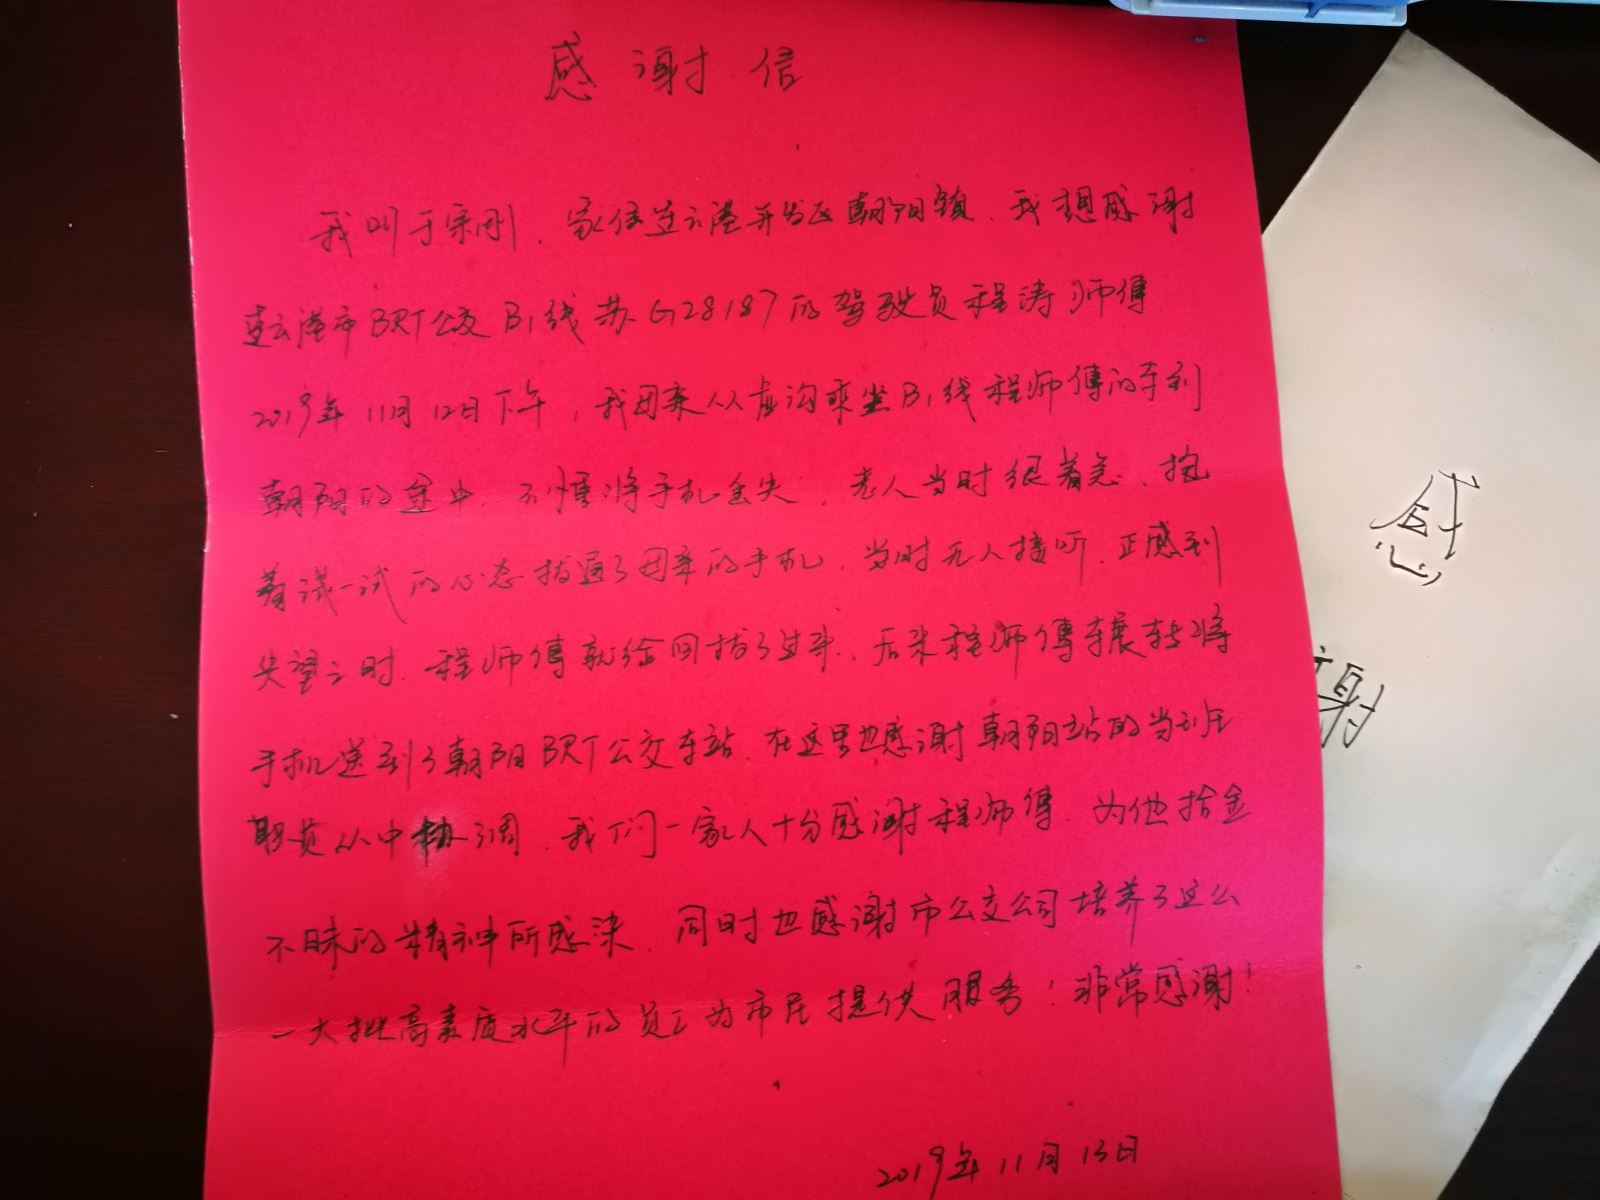 感谢信
我叫于宗刚．家住连云港开发区朝阳镇．我想感谢
连云港市BRT公交B1线苏G28187的驾驶员程涛师傅．
2019年11月12日下午，我母亲从墟沟乘坐B1线程师傅的车到
朝阳的途中．不慎将手机丢失，老人当时很着急．抱
着试一试的心态拨通了母亲的手机，当时无人接听．正感到
失望之时．程师傅就给回拨了过来．后来程师傅辗转将
手机送到了朝阳BRT公交车站．在这里也感谢朝阳站的当班
职员从中协调．我们一家人十分感谢程师傅．为他拾金
不昧的精神所感染．同时也感谢市公交公司培养了这么
一大批高素质水平的员工为市民提供服务！非常感谢！
2019年11月13日
感
谢